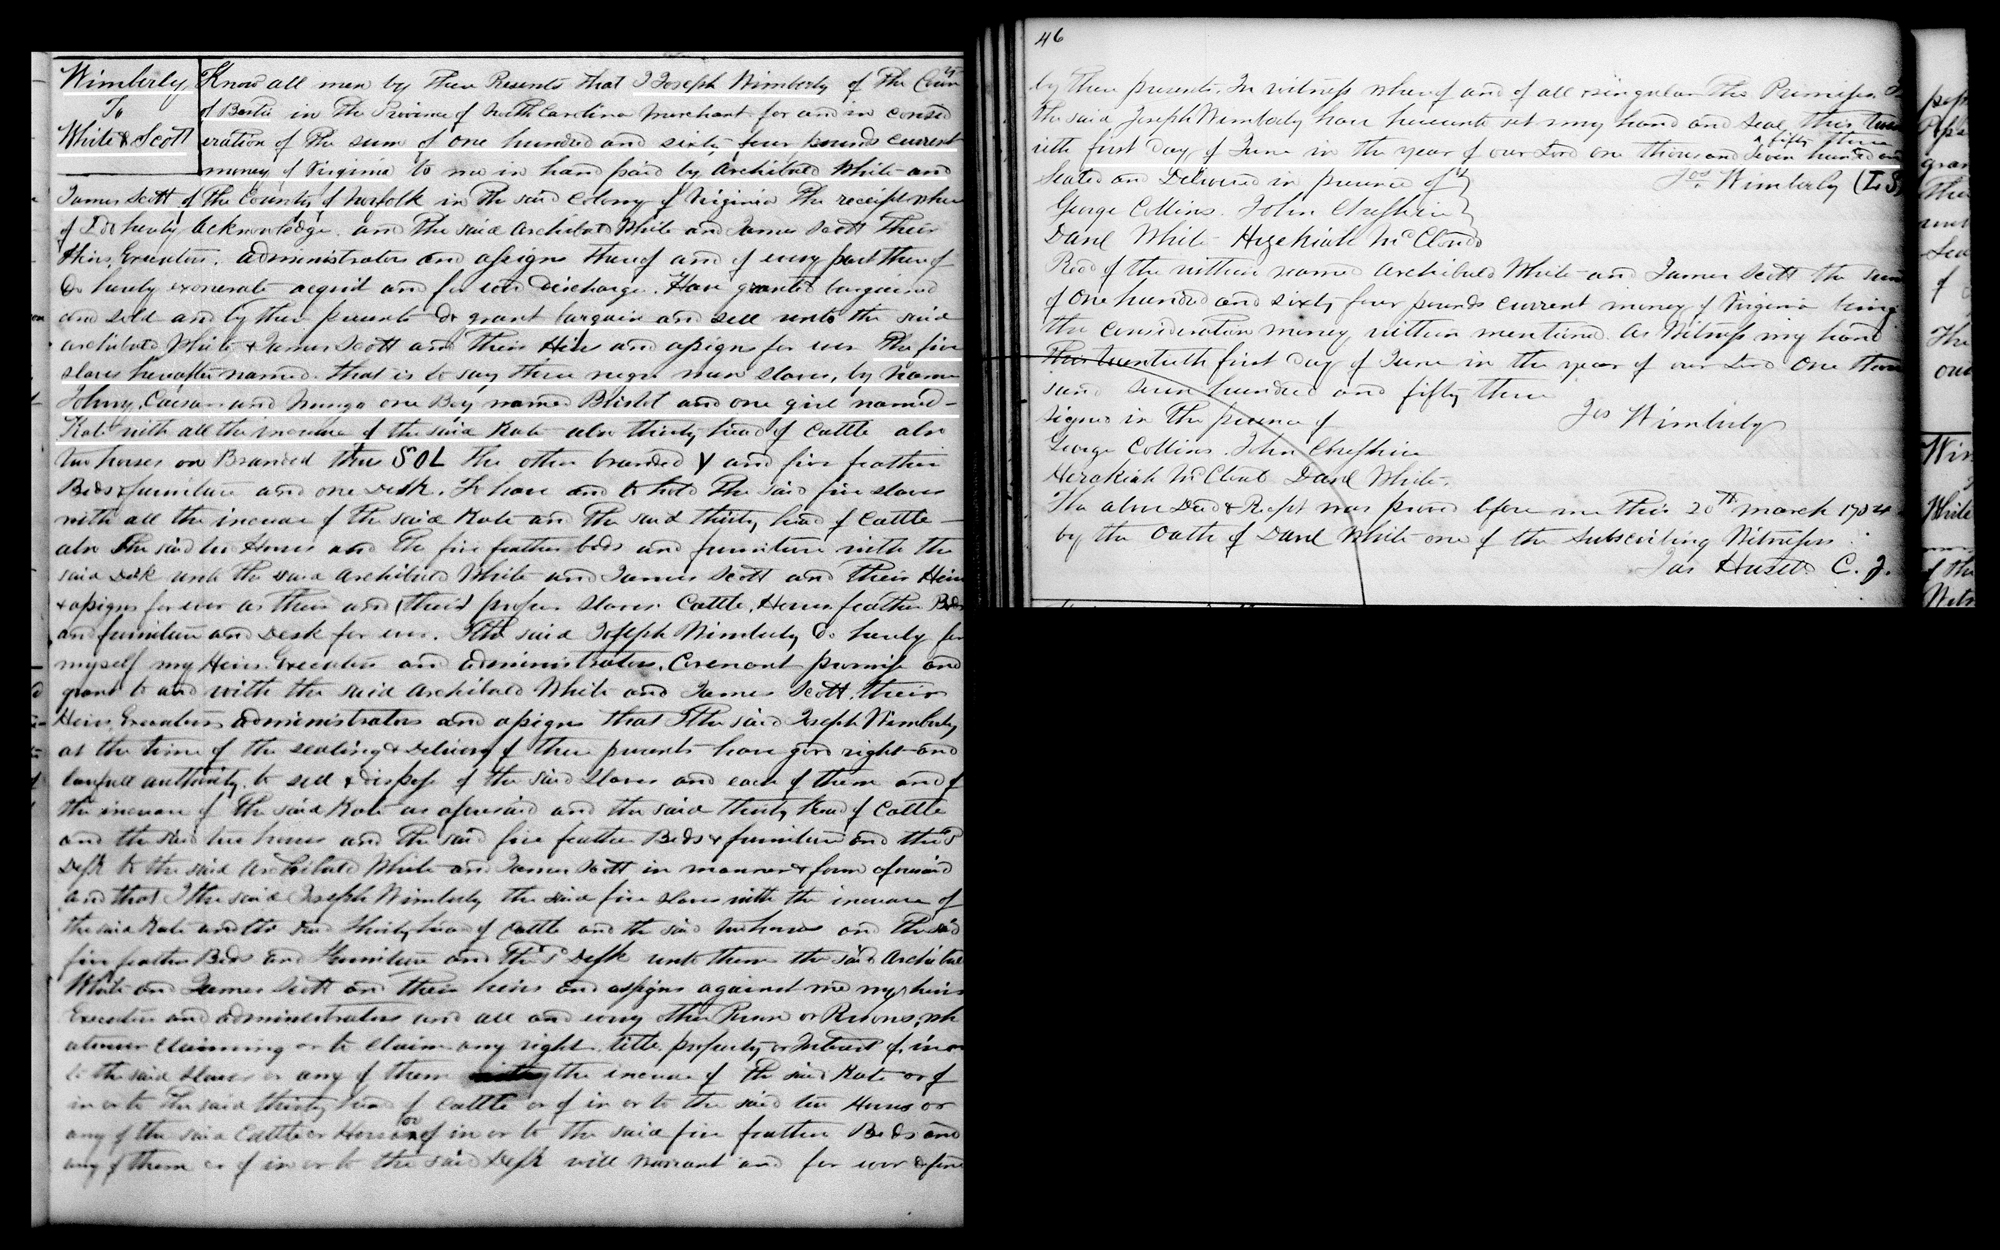 Wimberly
To
White & Scott
Know all men by these Presents that I Joseph Wimberly of the County
of Bertie in the Province of North Carolina Merchant for and in consid
eration of the sum of one hundred and sixty four pounds current
money of Virginia to me in hand paid by Archibald White and
James Scott of the County of Norfolk in the said Colony of Virginia the receipt where
of I do hereby acknowledge and the said Archibald White and James Scott their
Heirs, Executors, administrators and assigns thereof and of every part thereof
do hereby exonerate acquit and for ever discharge. Have granted bargained
and sold and by these presents do grant bargain and sell unto the said
Archibald White & James Scott and their Heirs and assigns for ever The five
slaves hereafter named. that is to say three negro man slaves, by name
Johny, Caesar and Mungo one Boy named Bristol and one girl named
Kate with all the increase of the said Kate also thirty head of cattle also
two horses on Branded thus SOL the other branded Y and five feather
Beds & furniture and one Desk. To have and to hold the said five slaves
with all the increase of the said Kate and the said thirty head of cattle
also the said two Horses and the five feather beds and furniture with the
said Desk unto the said Archibald White and James Scott and their Heirs
& assigns for ever as their and their proper slaves Cattle, Horses feather Beds
and furniture and Desk for ever. I the said Joseph Wimberly do hereby for
myself my Heirs Executors and administrators, Covenant promise and
grant to and with the said Archibald White and James Scott, their
Heirs, Executors administrators and assigns that I the said Joseph Wimberly
at the time of the sealing & Delivery of these presents have good right and
lawfull authority to sell & dispose of the said slaves and each of them and of
the increase of the said Kate as aforesaid and the said thirty head of cattle
and the said two horses and the said five feather Beds & furniture and the sd
Desk to the said Archibald White and James Scott in manner & form aforesaid
and that I the said Joseph Wimberly the said five slaves with the increase of
the said Kate and the said thirty head of Cattle and the said two horses and the said
five feather Beds and Furniture and the sd Desk unto them the said Archibald
White and James Scott and their heirs and assigns against me my heirs
Executors and administrators and all and every other Person or Persons, wh
atsoever Claiming or to claim any right title property or Interest of, in or
to the said slaves or any of them the increase of the said Kate or of
in or to the said thirty head of cattle or of in or to the said two Horses or
any of the said Cattle or Horses or of in or to the said five feather Beds and
any of them or of in or to the said Desk will warrant and for ever defend
46
by these presents. In witness whereof and of all & singular the Premises I
the said Joseph Wimberly have hereunto set my hand and seal this twen
tieth first day of June in the year of our Lord one thousand seven hundred and
& fifty three
Sealed and Delivered in presence of Jos. Wimberly (L.S)
George Collins. John Cheshire
Danl White - Hezekiah McCloud
Recd of the within named Archibald White and James Scott the sum
of One hundred and sixty four pounds current money of Virginia being
the consideration money within mentioned. As Witness my hand
This twentieth first day of June in the year of our Lord One thou
sand seven hundred and fifty three
Signed in the presence of Jos Wimberly
George Collins. John Cheshire
Hezekiah McCloud Danl White.
The above Deed & Rec'pt was proved before me this 20th March 1754
by the Oath of Danl White one of the Subscribing Witnesses.
Jas Hasell C. J.